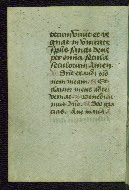 tecum vivit et re
gnat in unitate
spus sancti deus
per omnia secula
seculorum Amen
Dne exaudi
nem meam. Et
clamor meus ad te
veniat. Benedica
mus dno. Deo gra
cias. Aue maria